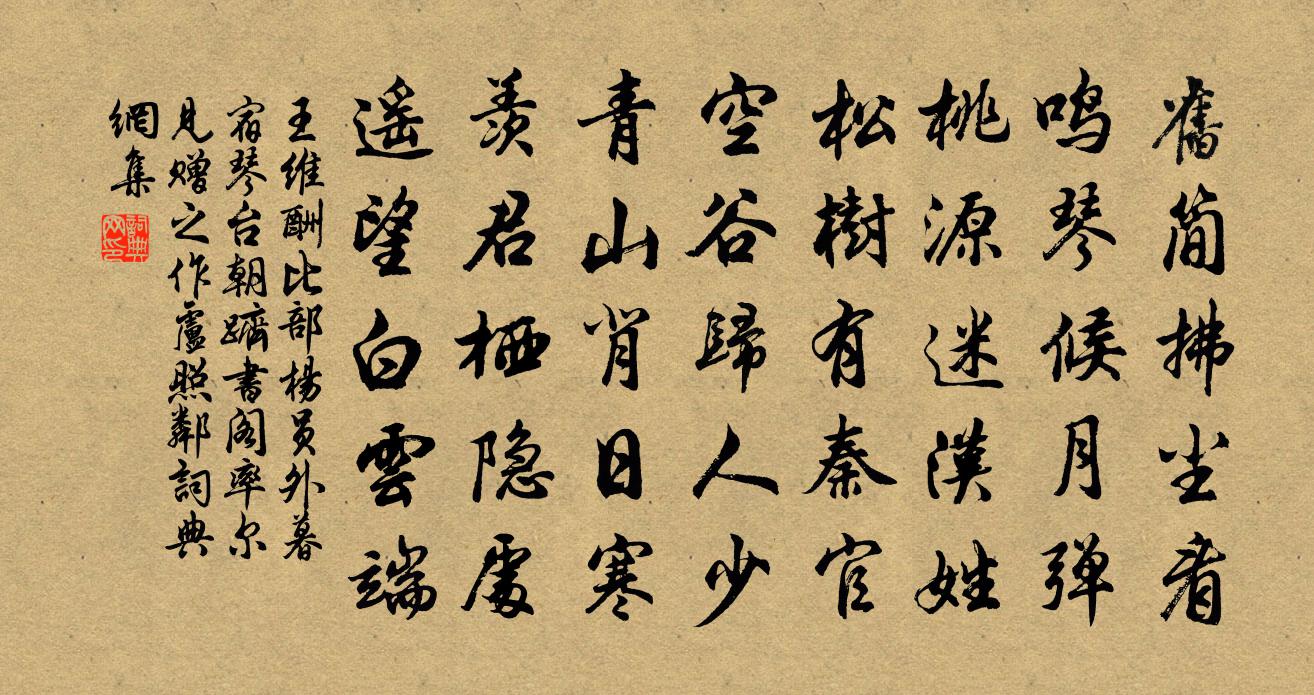 舊简拂尘看
鸣琴候月弹
桃源迷漢姓
松樹有秦官
空谷歸人少
青山背日寒
羨君栖隐處
遥望白雲端
王維酬比部楊員外暮
宿琴台朝躋書阁率尔
見赠之作盧照鄰詞典
網集
詞典网印